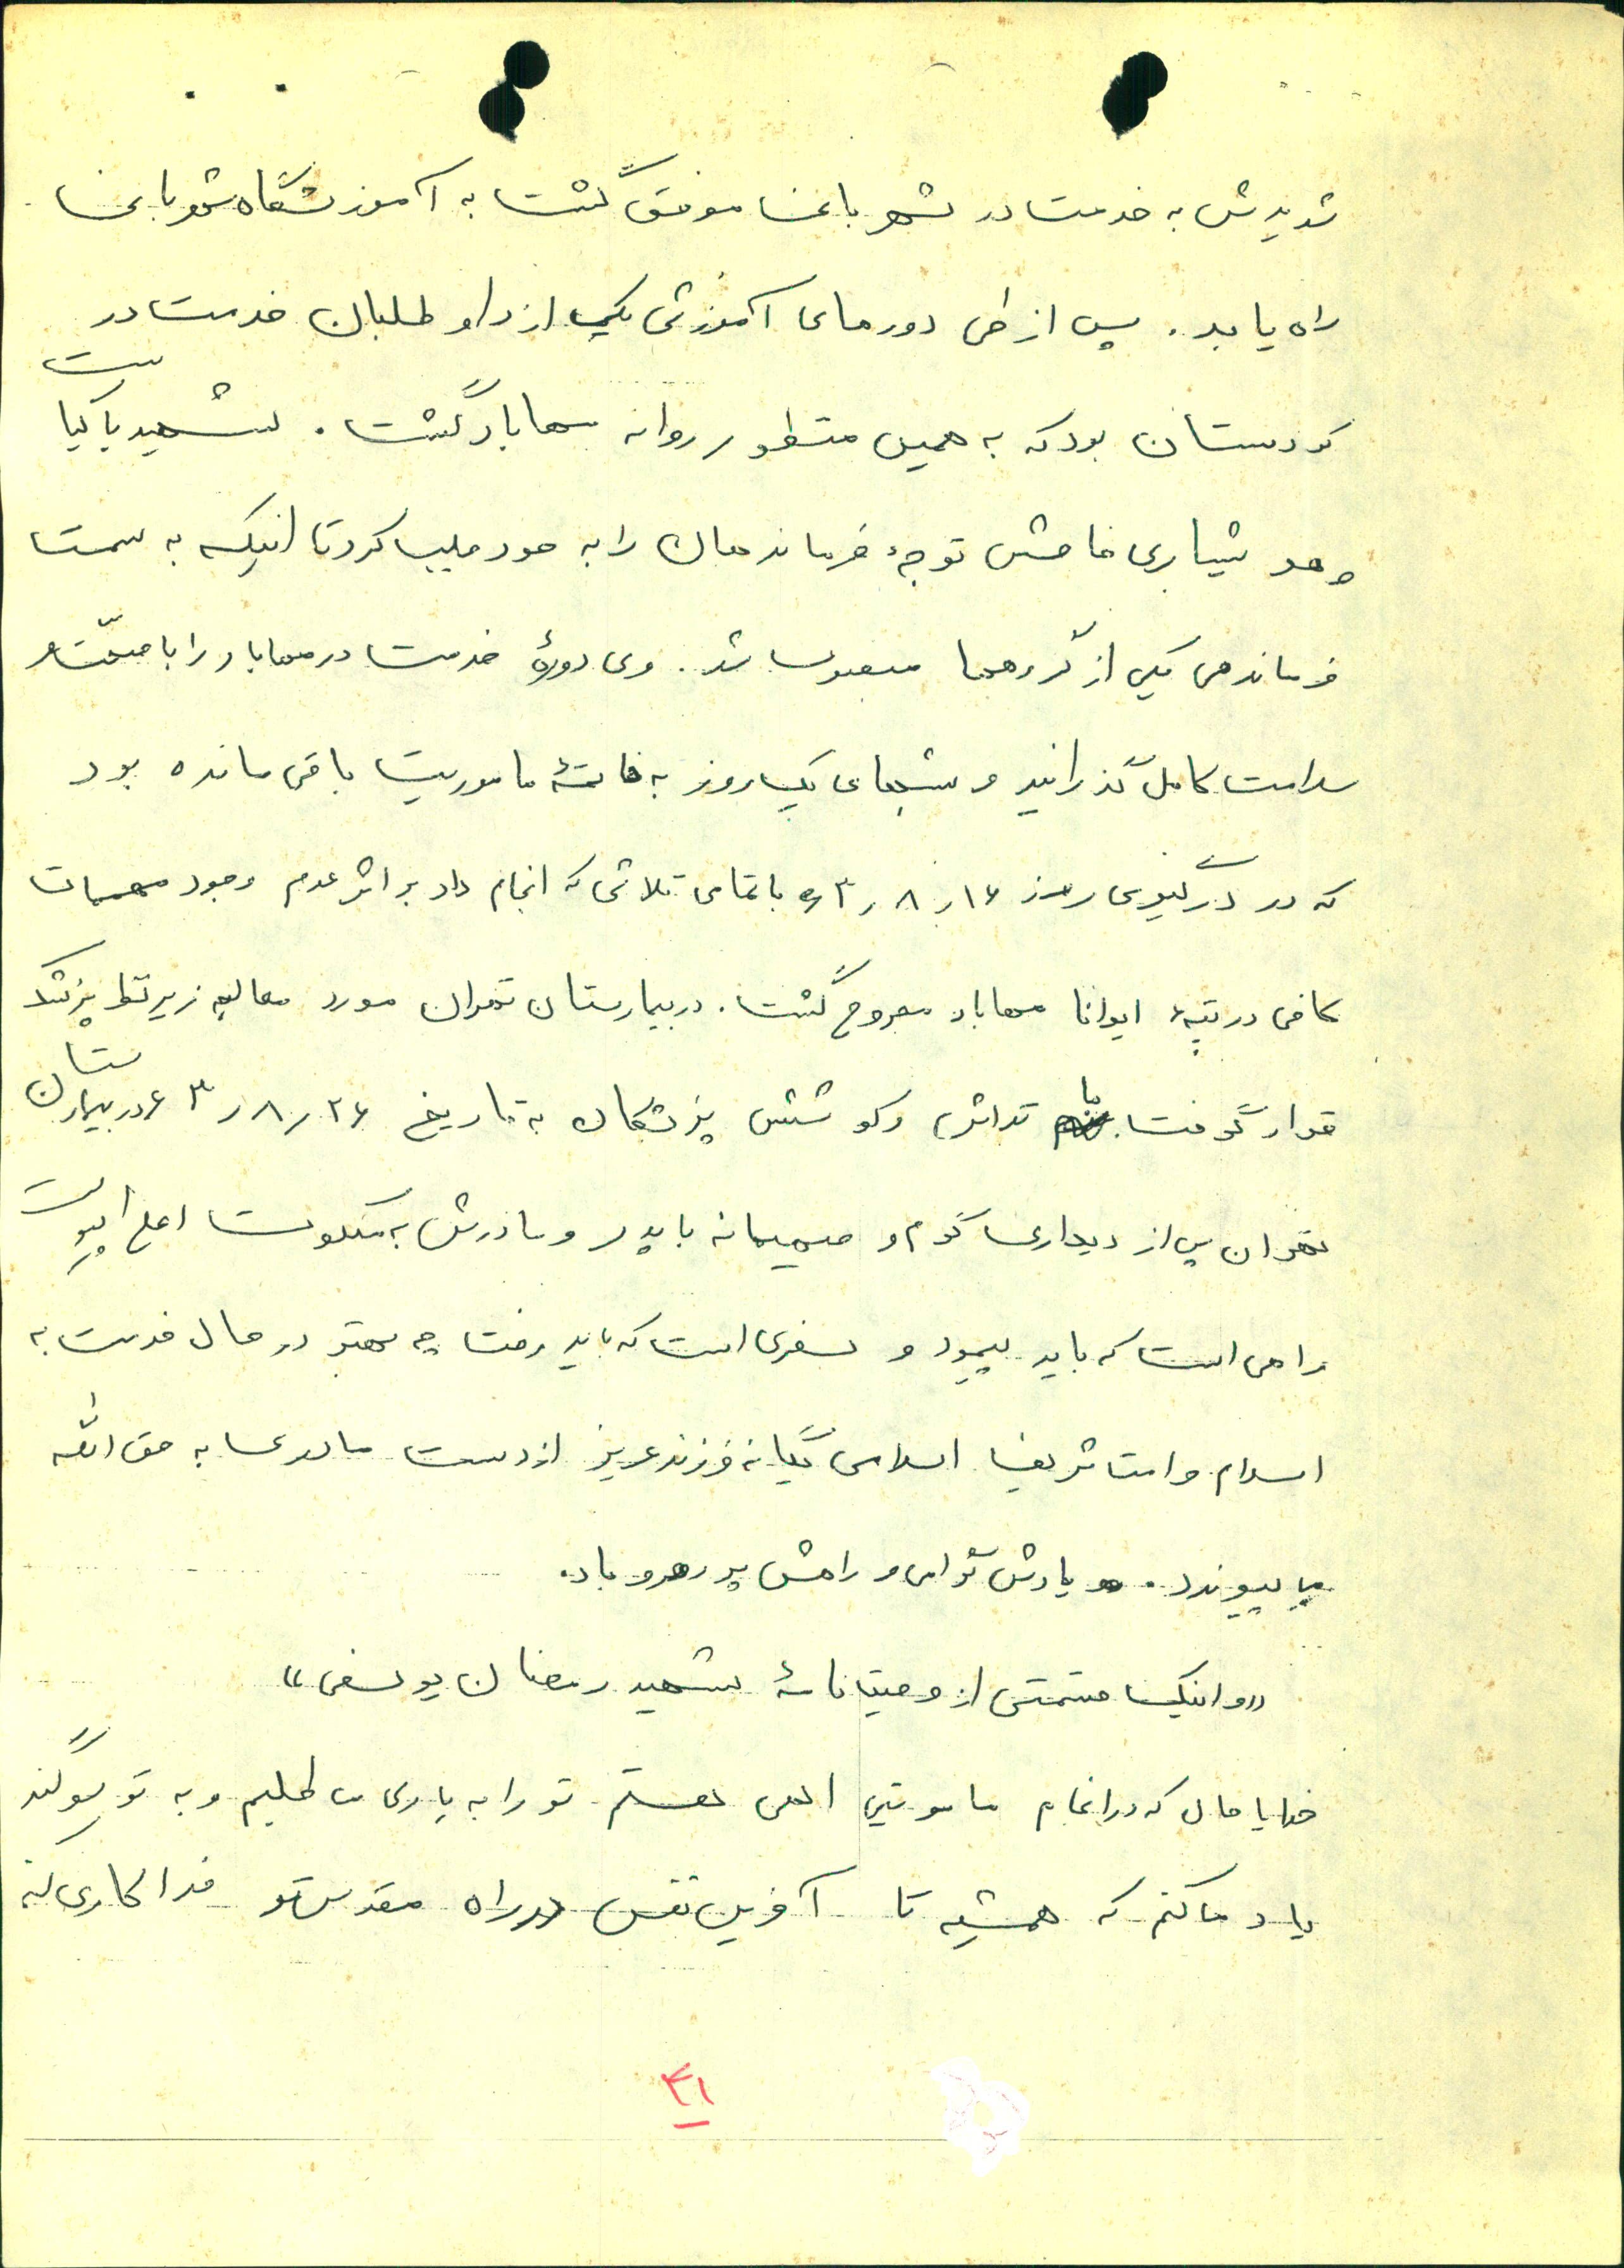 شدیدش به خدمت در شهربانی موفق گشت به آموزشگاه شهربانی
راه یابد. پس از طی دوره‌ای آموزشی یکی از داوطلبان خدمت در
کردستان بود که به همین منظور روانه مهاباد گشت. شهید با کیاست
و هوشیاری خاصش توجه فرماندهان را به خود جلب کرد تا اینکه به سمت
فرماندهی یکی از گروهها منصوب شد. وی دورهٔ خدمت در مهاباد را با صحّت و
سلامت کامل گذرانید و شبهای یک روز به خاتمهٔ ماموریت باقی مانده بود
که در درگیری روز ۱۶ر۸ر۶۳ با تمامی تلاشی که انجام داد بر اثر عدم وجود مهمات
کافی در تپهٔ ایوانا مهاباد مجروح گشت. در بیمارستان تهران مورد معالجه زیر نظر پزشک
قرار گرفت با تلاش و کوشش پزشکان به تاریخ ۲۶ر۸ر۶۳ در بیمارستان
تهران پس از دیداری گرم و صمیمانه با پدر و مادرش به ملکوت اعلی پیوست
راهی است که باید پیمود و سفری است که باید رفت چه بهتر در حال خدمت به
اسلام و امت شریف اسلامی یگانه فرزند عزیز از دست مادری به حق الله
بپیوندد. یادش گرامی و راهش پر رهرو باد.
«و اینک قسمتی از وصیتنامهٔ شهید رمضان یوسفی»
خدایا حال که در انجام ماموریتی الهی هستم تو را به یاری می طلبم و به تو سوگند
یاد می کنم که همیشه تا آخرین نفس در راه مقدس تو فداکاری کنم
۴۱